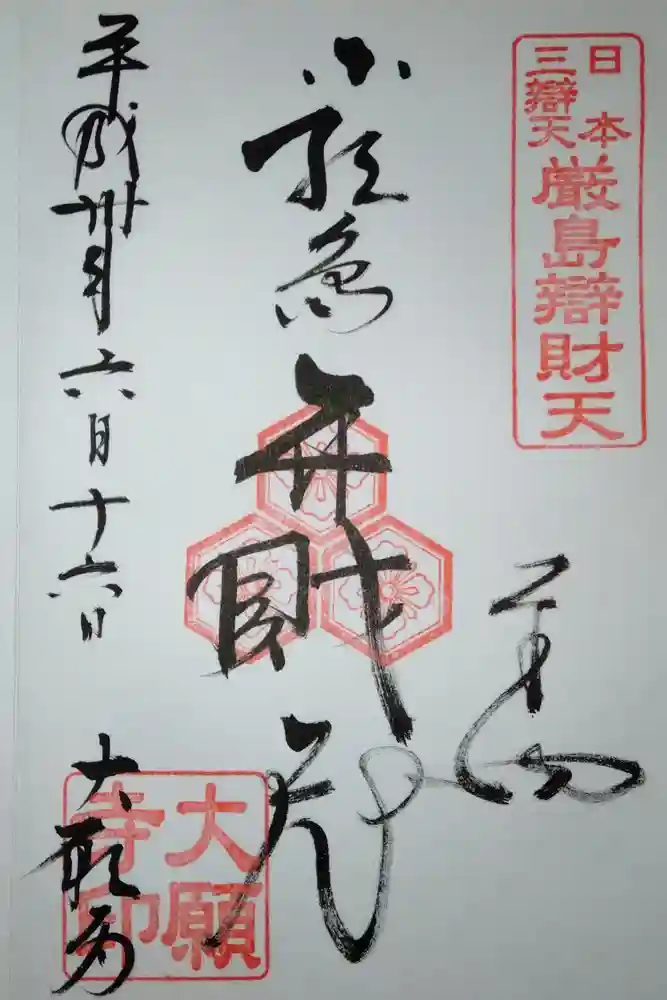 日本
三辯天
厳島辯財天
奉拝
厳島弁財天
平成卅年六月十六日
大願寺
大願
寺印